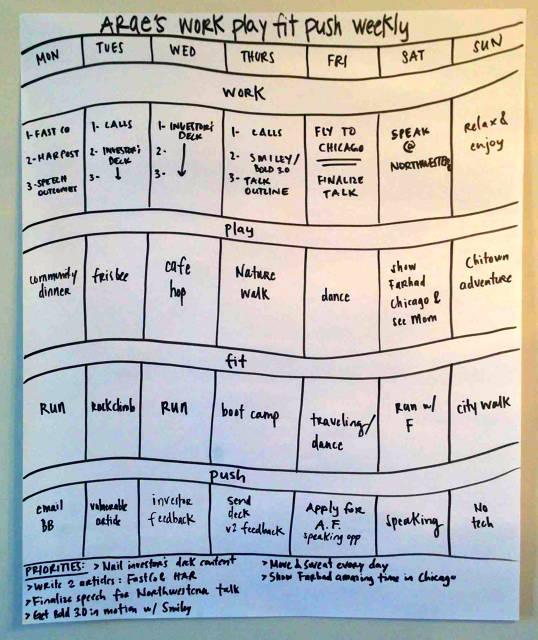 ARAE'S WORK play fit push weekly
MON TUES WED THURS FRI SAT SUN
WORK
1- FAST CO
2- HAR POST
3- SPEECH
OUTCOMES
1- CALLS
2- INVESTOR'S
DECK
3-
1- INVESTOR'S
DECK
2-
3-
1- CALLS
2- SMILEY/
BOLD 3.0
3- TALK
OUTLINE
FLY TO
CHICAGO
FINALIZE
TALK
SPEAK
@
NORTHWESTERN
relax &
enjoy
play
community
dinner
frisbee
cafe
hop
Nature
walk
dance
show
Farhad
Chicago &
see Mom
Chitown
adventure
fit
RUN
Rockclimb
RUN
boot camp
traveling/
dance
Run w/
F
city walk
push
email
BB
vulnerable
article
investor
feedback
send
deck
v2 feedback
Apply for
A.F.
speaking opp
speaking
No
tech
PRIORITIES: > Nail investor's deck content
> Write 2 articles: FastCo & HAR
> Finalize speech for Northwestern talk
> Get Bold 3.0 in motion w/ Smiley
> Move & sweat every day
> Show Farhad amazing time in Chicago